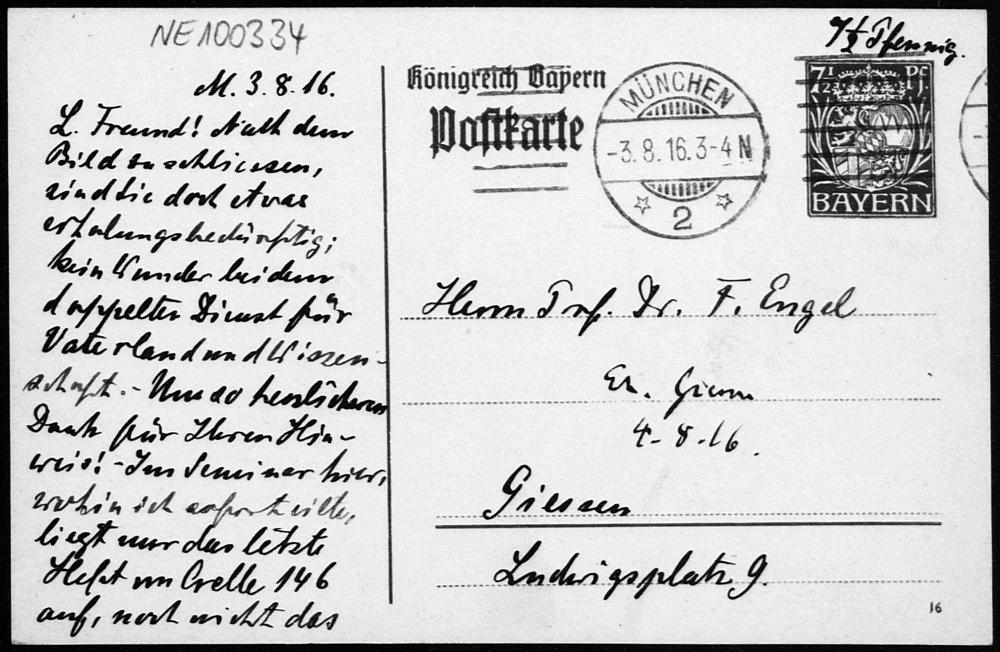 NE100334
7½ Pfennig.
M. 3.8.16.
L. Freund! Nach dem
Bild zu schliessen,
sind Sie doch etwas
erholungsbedürftig;
kein Wunder bei dem
doppelten Dienst für
Vaterland und Wissen-
schaft. - Umso herzlicheren
Dank für Ihren Hin-
weis! - Im Seminar hier,
wohin ich sofort eilte,
liegt nur das letzte
Heft von Crelle 146
auf, noch nicht das
Königreich Bayern
Postkarte
MÜNCHEN
-3.8.16.3-4 N
2
7½ Pf.
BAYERN
Herrn Prof. Dr. F. Engel
4-8-16.
Giessen
Ludwigsplatz 9.
16